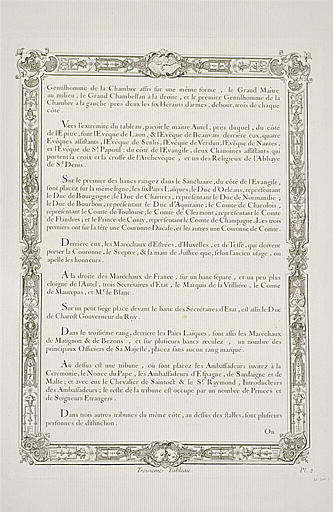 Gentilhomme de la Chambre assis sur une même forme, le Grand Maitre
au milieu, le Grand Chambellan à la droite, et le premier Gentilhomme de la
Chambre à la gauche: près d'eux les six Hérauts d'armes, debout, trois de chaque
côté.
Vers l'extrémité du tableau, paroît le maitre Autel, près duquel, du côté
de l'Epitre, sont l'Evêque de Laon, & l'Evêque de Beauvais: derriere eux, quatre
Evêques assistants, l'Evêque de Senlis, l'Evêque de Verdun, l'Evêque de Nantes,
et l'Evêque de St Papoul: du côté de l'Evangile, deux Chanoines assistants qui
portent la croix et la crosse de l'Archevêque, et un des Religieux de l'Abbaye
de St Denis.
Sur le premier des bancs rangez dans le Sanctuaire, du côté de l'Evangile,
sont placez sur la même ligne, les six Pairs Laïques; le Duc d'Orléans, représentant
le Duc de Bourgogne; le Duc de Chartres, représentant le Duc de Normandie;
le Duc de Bourbon, représentant le Duc d'Aquitaine; le Comte de Charolois,
représentant le Comte de Toulouse; le Comte de Clermont, représentant le Comte
de Flandres; et le Prince de Conty, représentant le Comte de Champagne. Les trois
premiers ont sur la tête une Couronne Ducale, et les autres une Couronne de Comte.
Derriere eux, les Maréchaux d'Estrées, d'Huxelles, et de Tessé, qui doivent
porter la Couronne, le Sceptre, & la main de Justice que, selon l'ancien usage, on
apelle les honneurs.
A la droite des Maréchaux de France, sur un banc séparé, et un peu plus
éloigné de l'Autel, trois Secrétaires d'Etat, le Marquis de la Vrilliere, le Comte
de Maurepas, et Mr le Blanc.
Sur un petit siege placé devant le banc des Sécrétaires d'Etat, est assis le Duc
de Charost Gouverneur du Roy.
Dans le troisième rang, derriere les Pairs Laïques, sont assis les Maréchaux
de Matignon & de Bezons, et sur plusieurs bancs reculez, un nombre des
principaux Officiers de Sa Majesté, placez sans aucun rang marqué.
Au dessus est une tribune, où sont placez les Ambassadeurs invitez à la
Cérémonie, le Nonce du Pape, les Ambassadeurs d'Espagne, de Sardaigne et de
Malte; et avec eux le Chevalier de Sainctot & le Sr Raymond, Introducteurs
des Ambassadeurs; le reste de la tribune est occupé par un nombre de Princes et
de Seigneurs Etrangers.
Dans trois autres tribunes du même côté, au dessus des stalles, sont plusieurs
personnes de distinction.
On
Troisieme Tableau.
Pl. 2